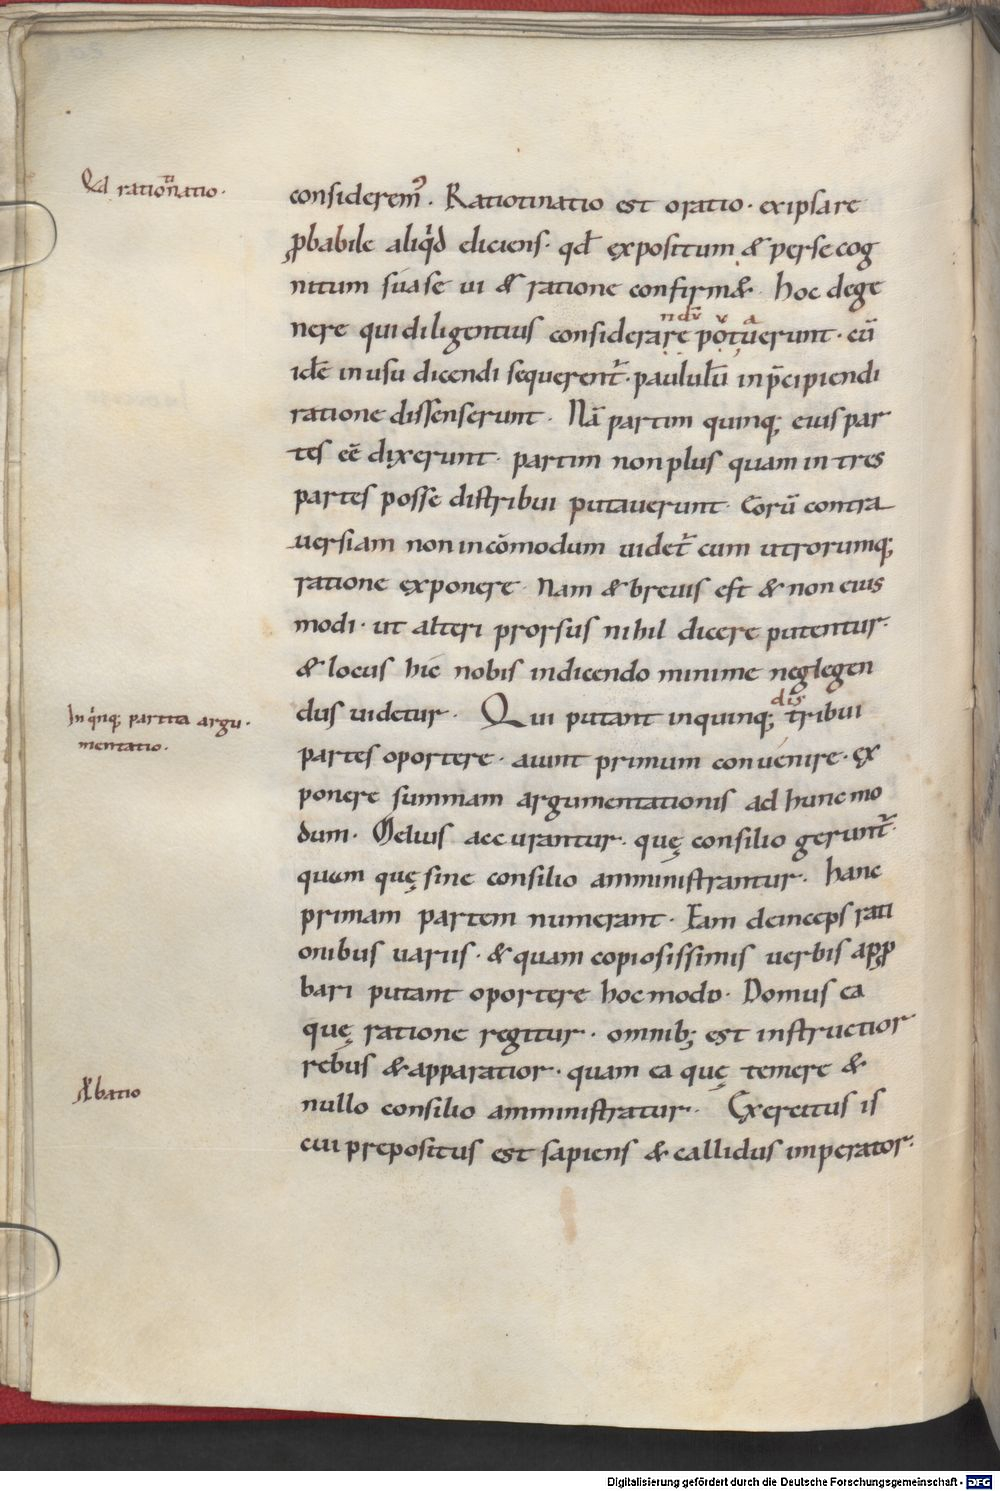 Qd rationatio·
ti
considerem᾽. Ratiotinatio est oratio· exipsa re
ꝓbabile aliqͥd eliciens· qd̄ ęxpositum & perse cog
nitum sua se ui & ratione confirm&· hoc dege
ndū v a
nere qui diligentius considerare potuerunt· cū
idē in usu dicendi sequerent᷑· paululū in p̄cipiendi
ratione dissenserunt· Nā partim quinq; eius par
tes eē dixerunt· partim non plus quam in tres
partes posse distribui putauerunt· Eorū contra
uersiam non incōmodum uidet᷑ cum utrorumq;
ratione ęxponere· Nam & breuis est & non eius
modi· ut alteri prorsus nihil dicere putentur·
& locus hic nobis indicendo minime neglegen
dis
In qͥnq; partita argu·
mentatio·
dus uidetur· Qui putant inquinq; tribui
partes oportere· aiunt primum conuenire· ęx
ponere summam argumentationis ad hunc mo
dum· Melius accurantur· quę consilio gerunt᷑·
quam quę sine consilio amministrantur· hanc
primam partem numerant· Eam deinceps rati
onibus uariis· & quam copiosissimis uerbis apꝓ
bari putant oportere hoc modo· Domus ea
quę ratione regitur· omnib; est instructior
rebus & apparatior· quam ea quę temere &
ꝓbatio
nullo consilio amministratur· Ęxercitus is
cui prepositus est sapiens & callidus imperator·
Digitalisierung gefördert durch die Deutsche Forschungsgemeinschaft - DFG